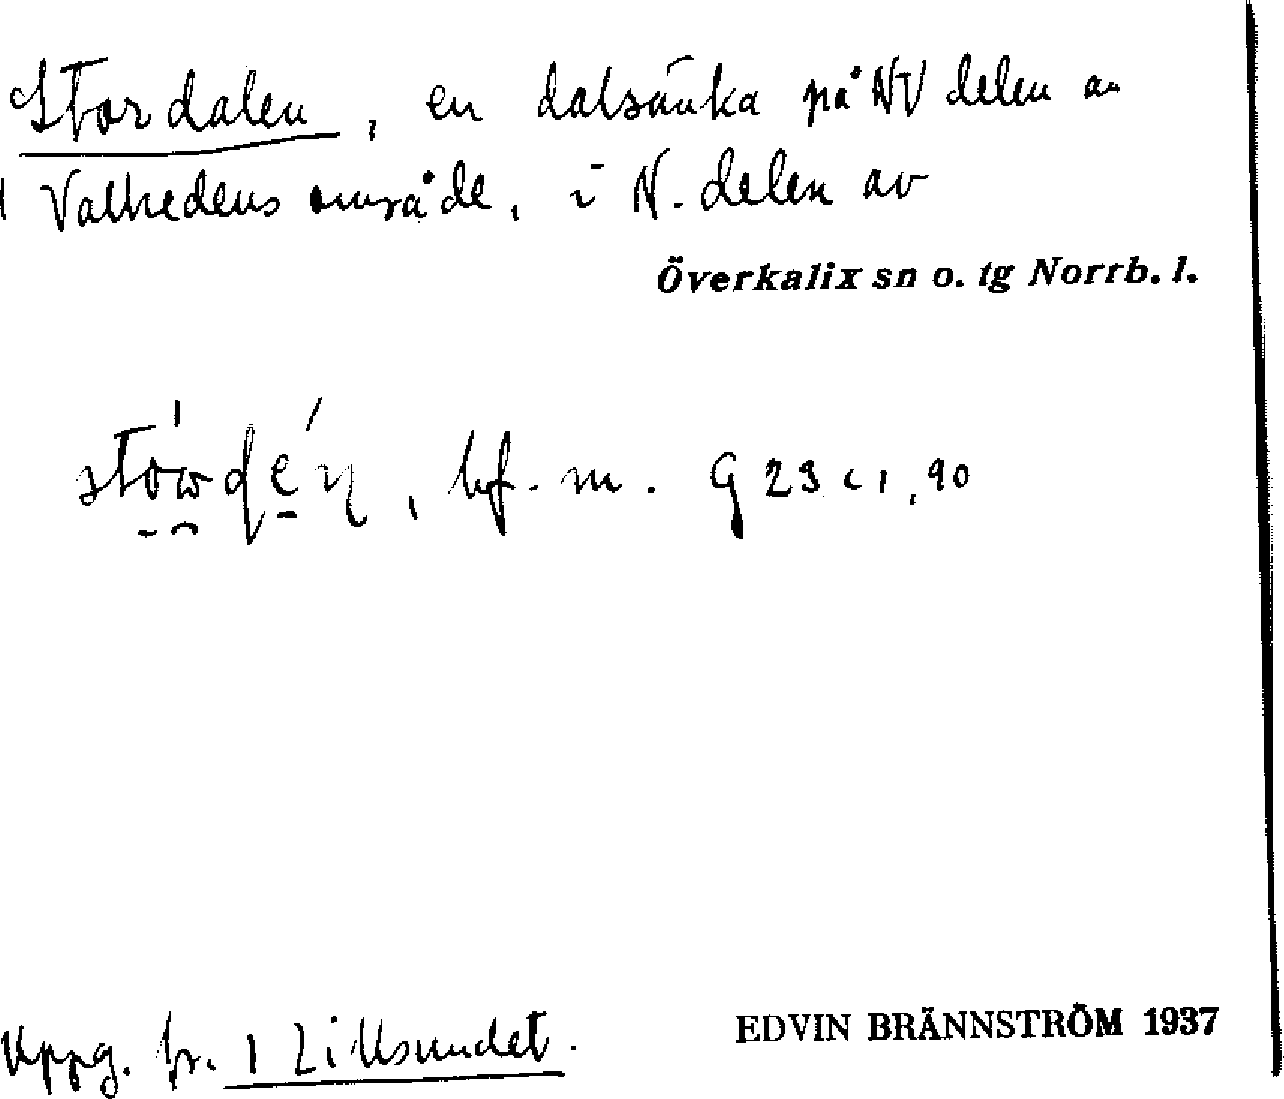 Stordalen, en dalsänka på NV delen av
1 Valhedens område, i N. delen av
Överkalix sn o. tg Norrb. l.
bf. m. G 23 c 1, 90
Uppg. fr. 1 Lillsundet.
EDVIN BRÄNNSTRÖM 1937